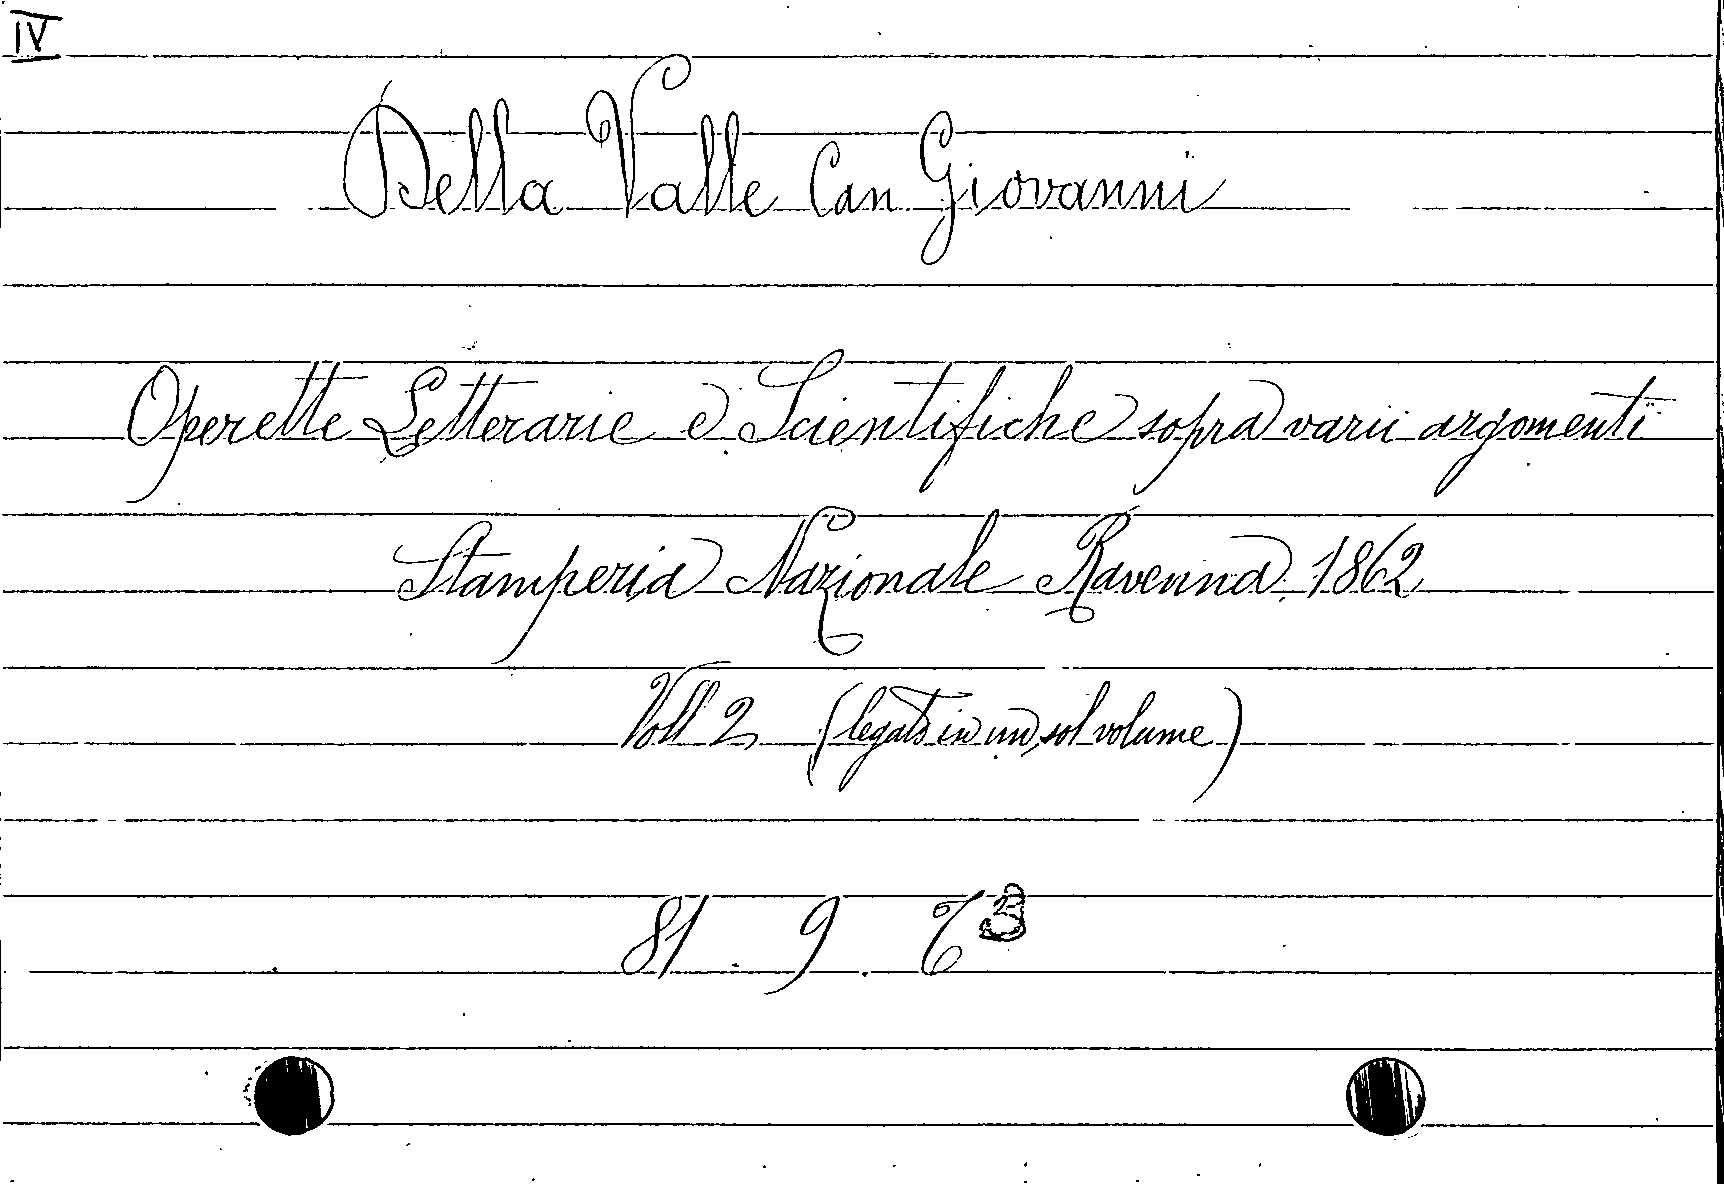 IV
Della Valle Can Giovanni
Operette Letterarie e Scientifiche sopra varii argomenti
Stamperia Nazionale Ravenna 1862
Voll 2 (legato in un sol volume)
81 . 9 .